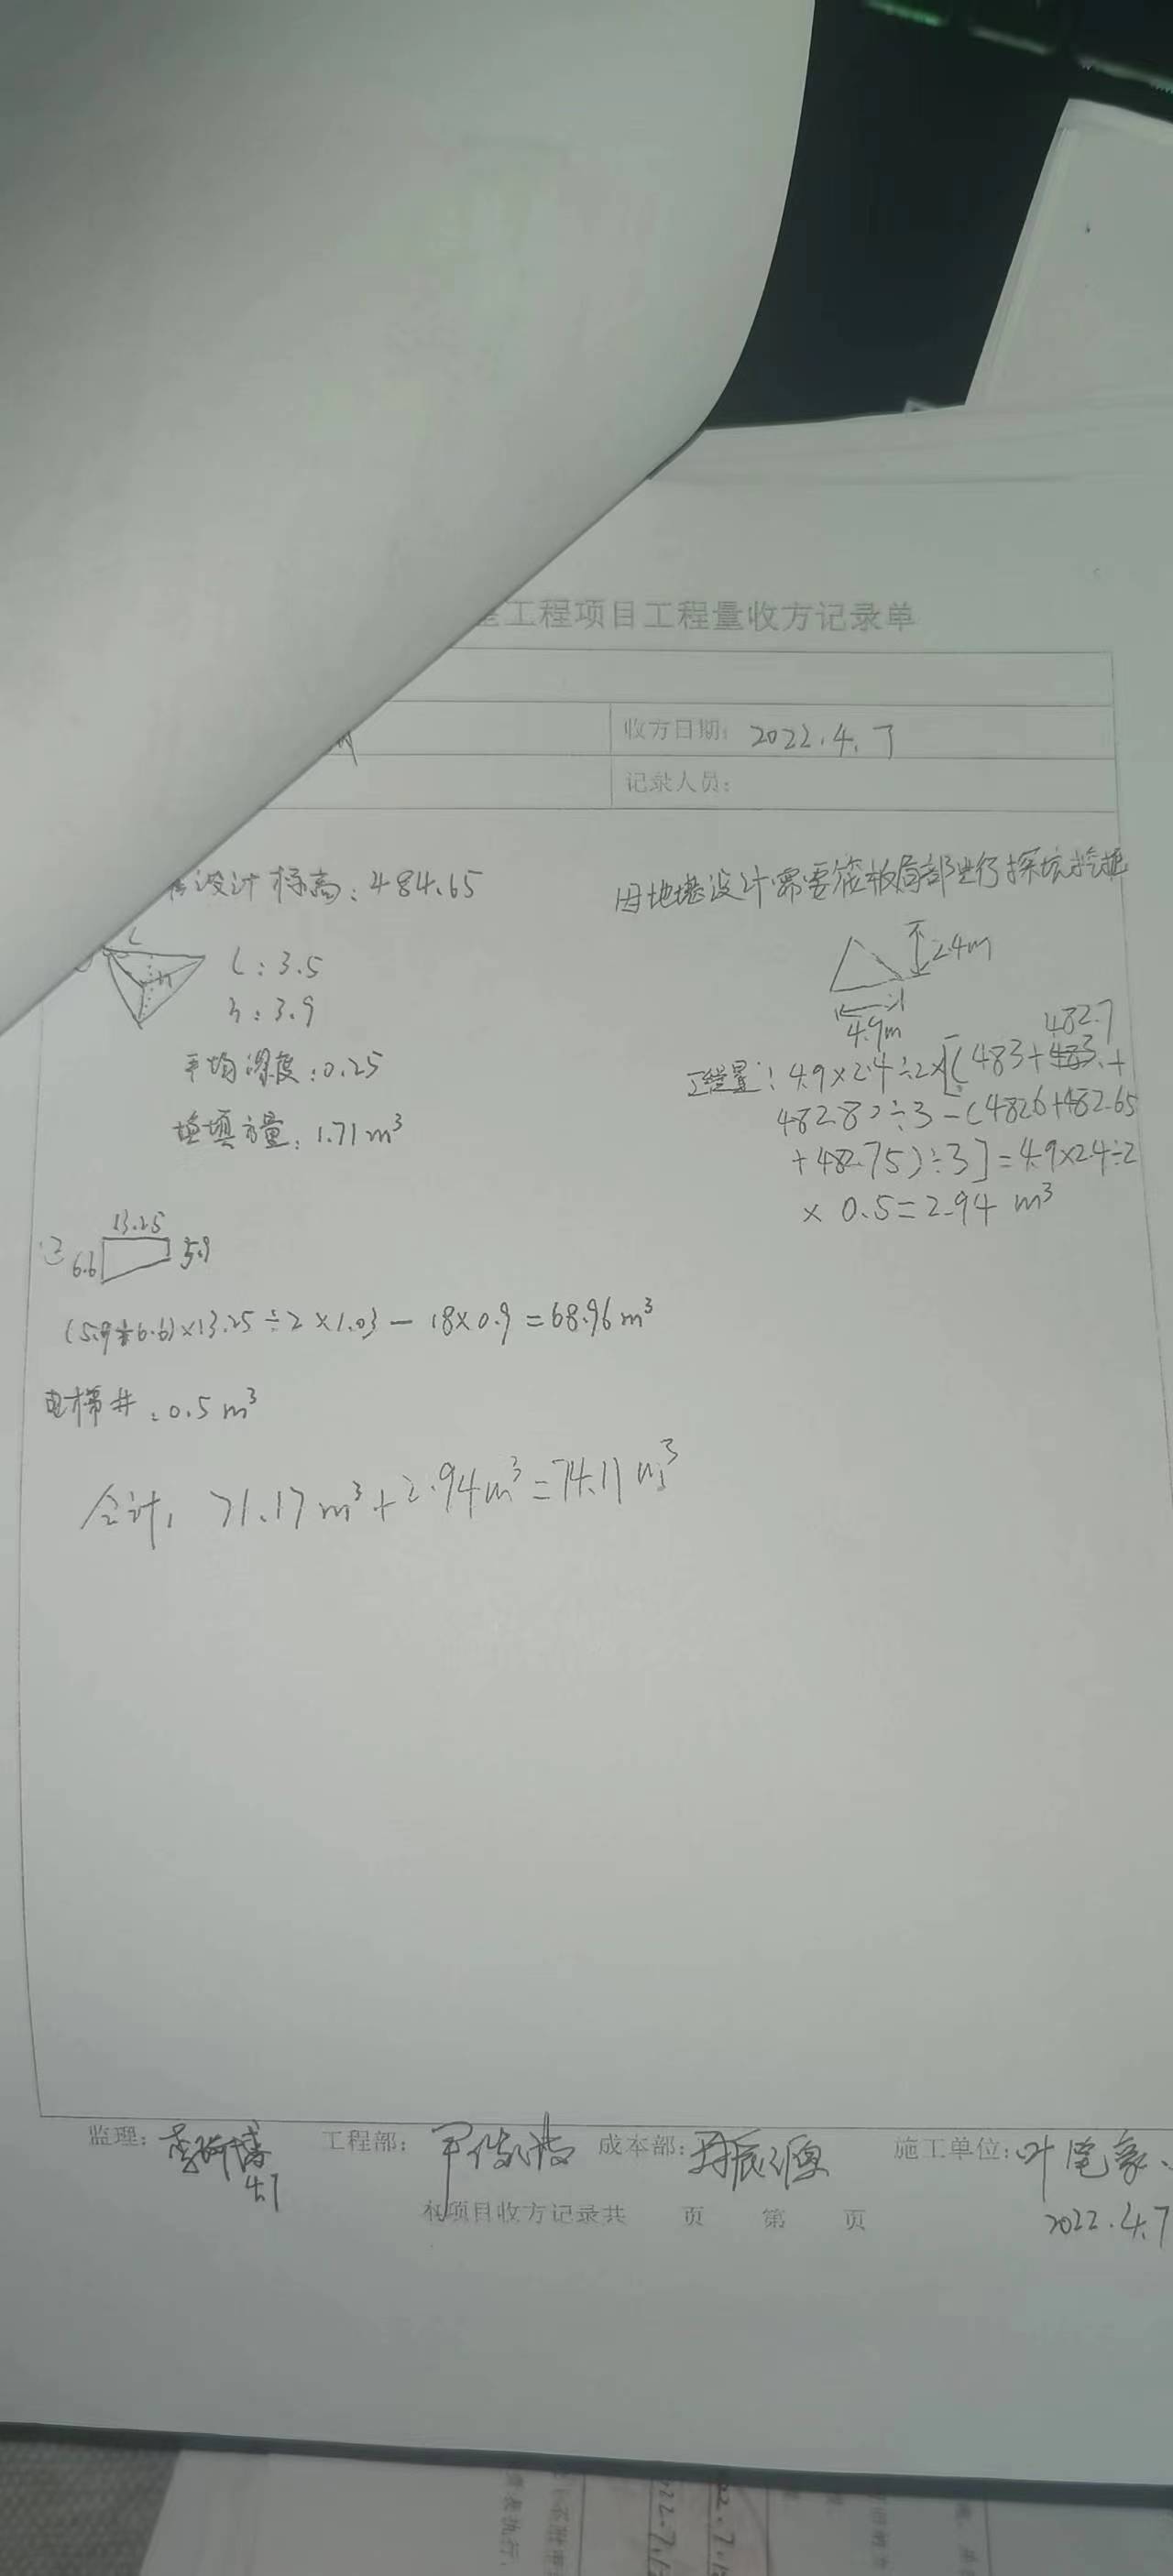 工程项目工程量收方记录单
收方日期: 2022.4.7
记录人员:
设计标高: 484.65
L: 3.5
h: 3.9
平均深度: 0.25
填方量: 1.71m³
因地堪设计需要筏板局部进行探坑挖掘
2.4m
4.9m
482.7
工程量: 4.9×2.4÷2×[(483+483.+
482.8)÷3-(482.6+482.65
+482.75)÷3]=4.9×2.4÷2
×0.5=2.94 m³
13.25
6.6
5.9
(5.9+6.6)×13.25÷2×1.03-18×0.9=68.96m³
电梯井: 0.5m³
合计: 71.17m³+2.94m³=74.11m³
监理: 工程部: 成本部: 施工单位:
4.7
本项目收方记录共 页 第 页
2022.4.7